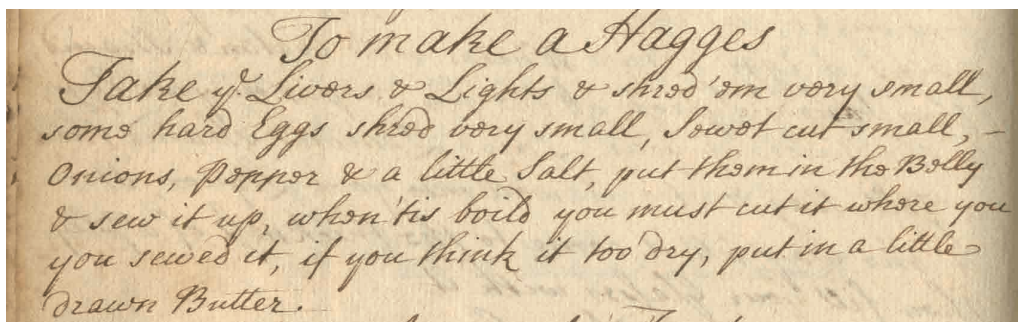 To make a Hagges
Take yͤ. Livers & Lights & shred 'em very small,
some hard Eggs shred very small, Sewet cut small, –
Onions, Pepper & a little Salt, put them in the Belly
& sew it up, when 'tis boild you must cut it where you
you sewed it, if you think it too dry, put in a little
drawn Butter.